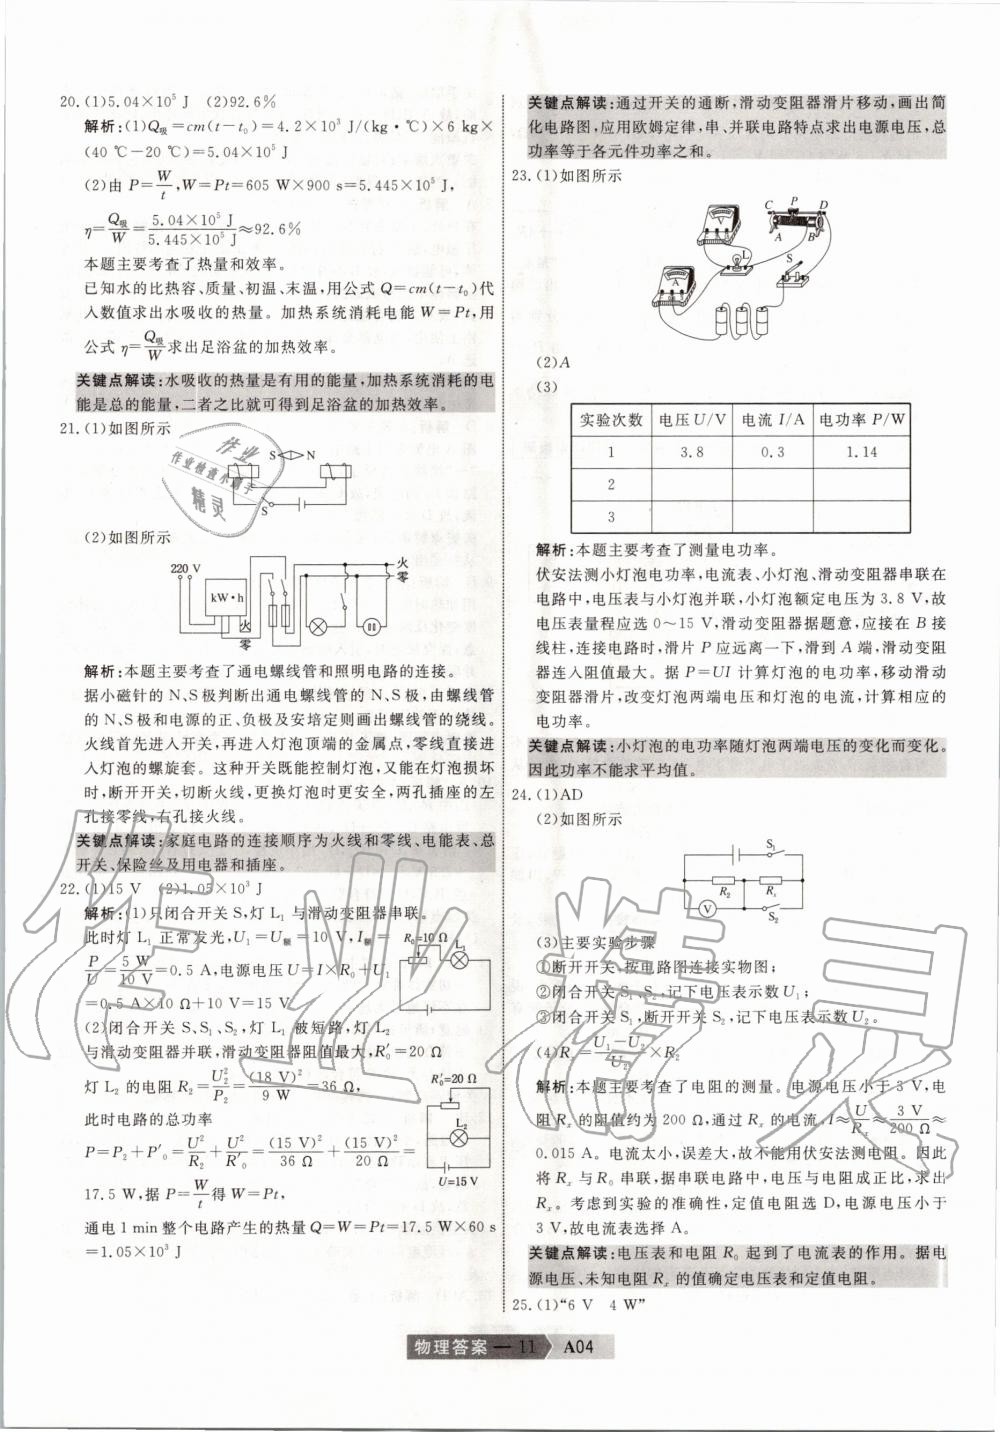 20.(1)5.04×10⁵ J  (2)92.6%
解析:(1)Q吸=cm(t-t₀)=4.2×10³ J/(kg·℃)×6 kg×
(40 ℃-20 ℃)=5.04×10⁵ J
(2)由 P=W/t,W=Pt=605 W×900 s=5.445×10⁵ J,
η=Q吸/W=5.04×10⁵ J/5.445×10⁵ J≈92.6%
本题主要考查了热量和效率。
已知水的比热容、质量、初温、末温,用公式 Q=cm(t-t₀)代
入数值求出水吸收的热量。加热系统消耗电能 W=Pt,用
公式 η=Q吸/W求出足浴盆的加热效率。
关键点解读:水吸收的热量是有用的能量,加热系统消耗的电
能是总的能量,二者之比就可得到足浴盆的加热效率。
21.(1)如图所示
S N
S
作业
作业检查小助手
精灵
(2)如图所示
220 V
火
零
kW·h
火
零
解析:本题主要考查了通电螺线管和照明电路的连接。
据小磁针的 N、S极判断出通电螺线管的 N、S极,由螺线管
的 N、S极和电源的正、负极及安培定则画出螺线管的绕线。
火线首先进入开关,再进入灯泡顶端的金属点,零线直接进
入灯泡的螺旋套。这种开关既能控制灯泡,又能在灯泡损坏
时,断开开关,切断火线,更换灯泡时更安全,两孔插座的左
孔接零线,右孔接火线。
关键点解读:家庭电路的连接顺序为火线和零线、电能表、总
开关、保险丝及用电器和插座。
22.(1)15 V  (2)1.05×10³ J
解析:(1)只闭合开关 S,灯 L₁ 与滑动变阻器串联。
此时灯 L₁ 正常发光,U₁=U额=10 V,I额=
P/U=5 W/10 V=0.5 A,电源电压 U=I×R₀+U₁
=0.5 A×10 Ω+10 V=15 V
R₀=10 Ω L₁
(2)闭合开关 S、S₁、S₂,灯 L₁ 被短路,灯 L₂
与滑动变阻器并联,滑动变阻器阻值最大,R₀′=20 Ω
灯 L₂ 的电阻 R₂=U₂²/P₂=(18 V)²/9 W=36 Ω,
此时电路的总功率
P=P₂+P′₀=U²/R₂+U²/R′₀=(15 V)²/36 Ω+(15 V)²/20 Ω=
17.5 W,据 P=W/t得 W=Pt,
R₀′=20 Ω
L₂
U=15 V
通电 1 min 整个电路产生的热量 Q=W=Pt=17.5 W×60 s
=1.05×10³ J
关键点解读:通过开关的通断,滑动变阻器滑片移动,画出简
化电路图,应用欧姆定律,串、并联电路特点求出电源电压,总
功率等于各元件功率之和。
23.(1)如图所示
V
C P D
A B
L
S
A
(2)A
(3)
实验次数 电压 U/V 电流 I/A 电功率 P/W
1 3.8 0.3 1.14
2
3
解析:本题主要考查了测量电功率。
伏安法测小灯泡电功率,电流表、小灯泡、滑动变阻器串联在
电路中,电压表与小灯泡并联,小灯泡额定电压为 3.8 V,故
电压表量程应选 0~15 V,滑动变阻器据题意,应接在 B 接
线柱,连接电路时,滑片 P 应远离一下,滑到 A 端,滑动变阻
器连入阻值最大。据 P=UI 计算灯泡的电功率,移动滑动
变阻器滑片,改变灯泡两端电压和灯泡的电流,计算相应的
电功率。
关键点解读:小灯泡的电功率随灯泡两端电压的变化而变化。
因此功率不能求平均值。
24.(1)AD
(2)如图所示
S₁
R₂ Rₓ
V
S₂
(3)主要实验步骤
①断开开关、按电路图连接实物图;
②闭合开关 S₁、S₂,记下电压表示数 U₁;
③闭合开关 S₁,断开开关 S₂,记下电压表示数 U₂。
(4)Rₓ=U₁-U₂/U₂×R₂
解析:本题主要考查了电阻的测量。电源电压小于 3 V,电
阻 Rₓ 的阻值约为 200 Ω,通过 Rₓ 的电流 I≈U/Rₓ≈3 V/200 Ω≈
0.015 A。电流太小,误差大,故不能用伏安法测电阻。因此
将 Rₓ 与 R₀ 串联,据串联电路中,电压与电阻成正比,求出
Rₓ。考虑到实验的准确性,定值电阻选 D,电源电压小于
3 V,故电流表选择 A。
关键点解读:电压表和电阻 R₀ 起到了电流表的作用。据电
源电压、未知电阻 Rₓ 的值确定电压表和定值电阻。
25.(1)“6 V  4 W”
作业精灵
物理答案 — 11 A04